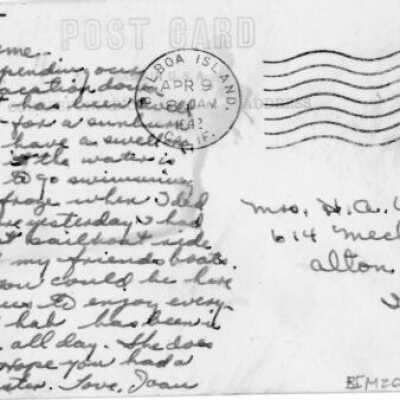 POST CARD
BALBOA ISLAND,
APR 9
AM
CALIF.
spending our
vacation down
has been
for a sunburn
have a swell
the water is
to go swimming
froze when I did
yesterday I had
sailboat ride
my friends boats.
you could be here
us to enjoy every-
hab has been in
all day. She does
hope you had a
ster. Love, Joan
Mrs. H.A.
614
Alton